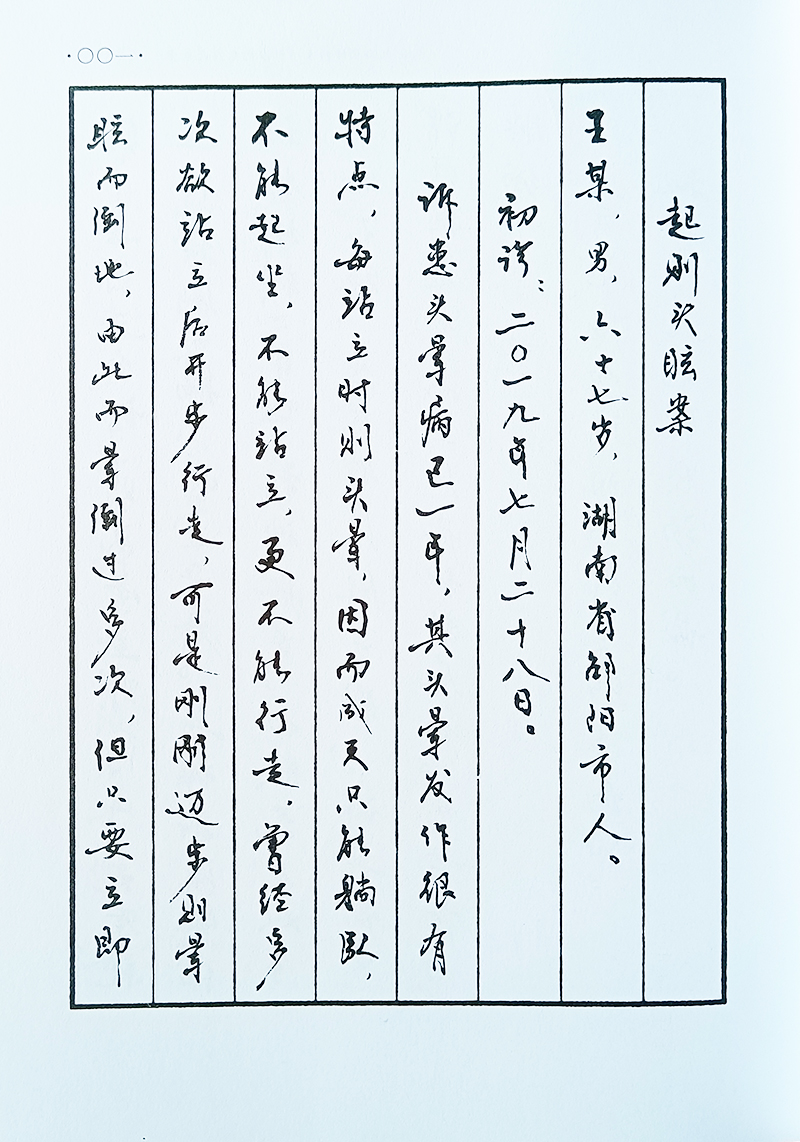 ·〇〇一·
起则头眩案
王某，男，六十七岁，湖南省邵阳市人。
初诊：二〇一九年七月二十八日。
诉患头晕病已一年，其头晕发作很有
特点，每站立时则头晕，因而成天只能躺卧，
不能起坐，不能站立，更不能行走，曾经多
次欲站立后开步行走，可是刚刚迈步则晕
眩而倒地，由此而晕倒过多次，但只要立即